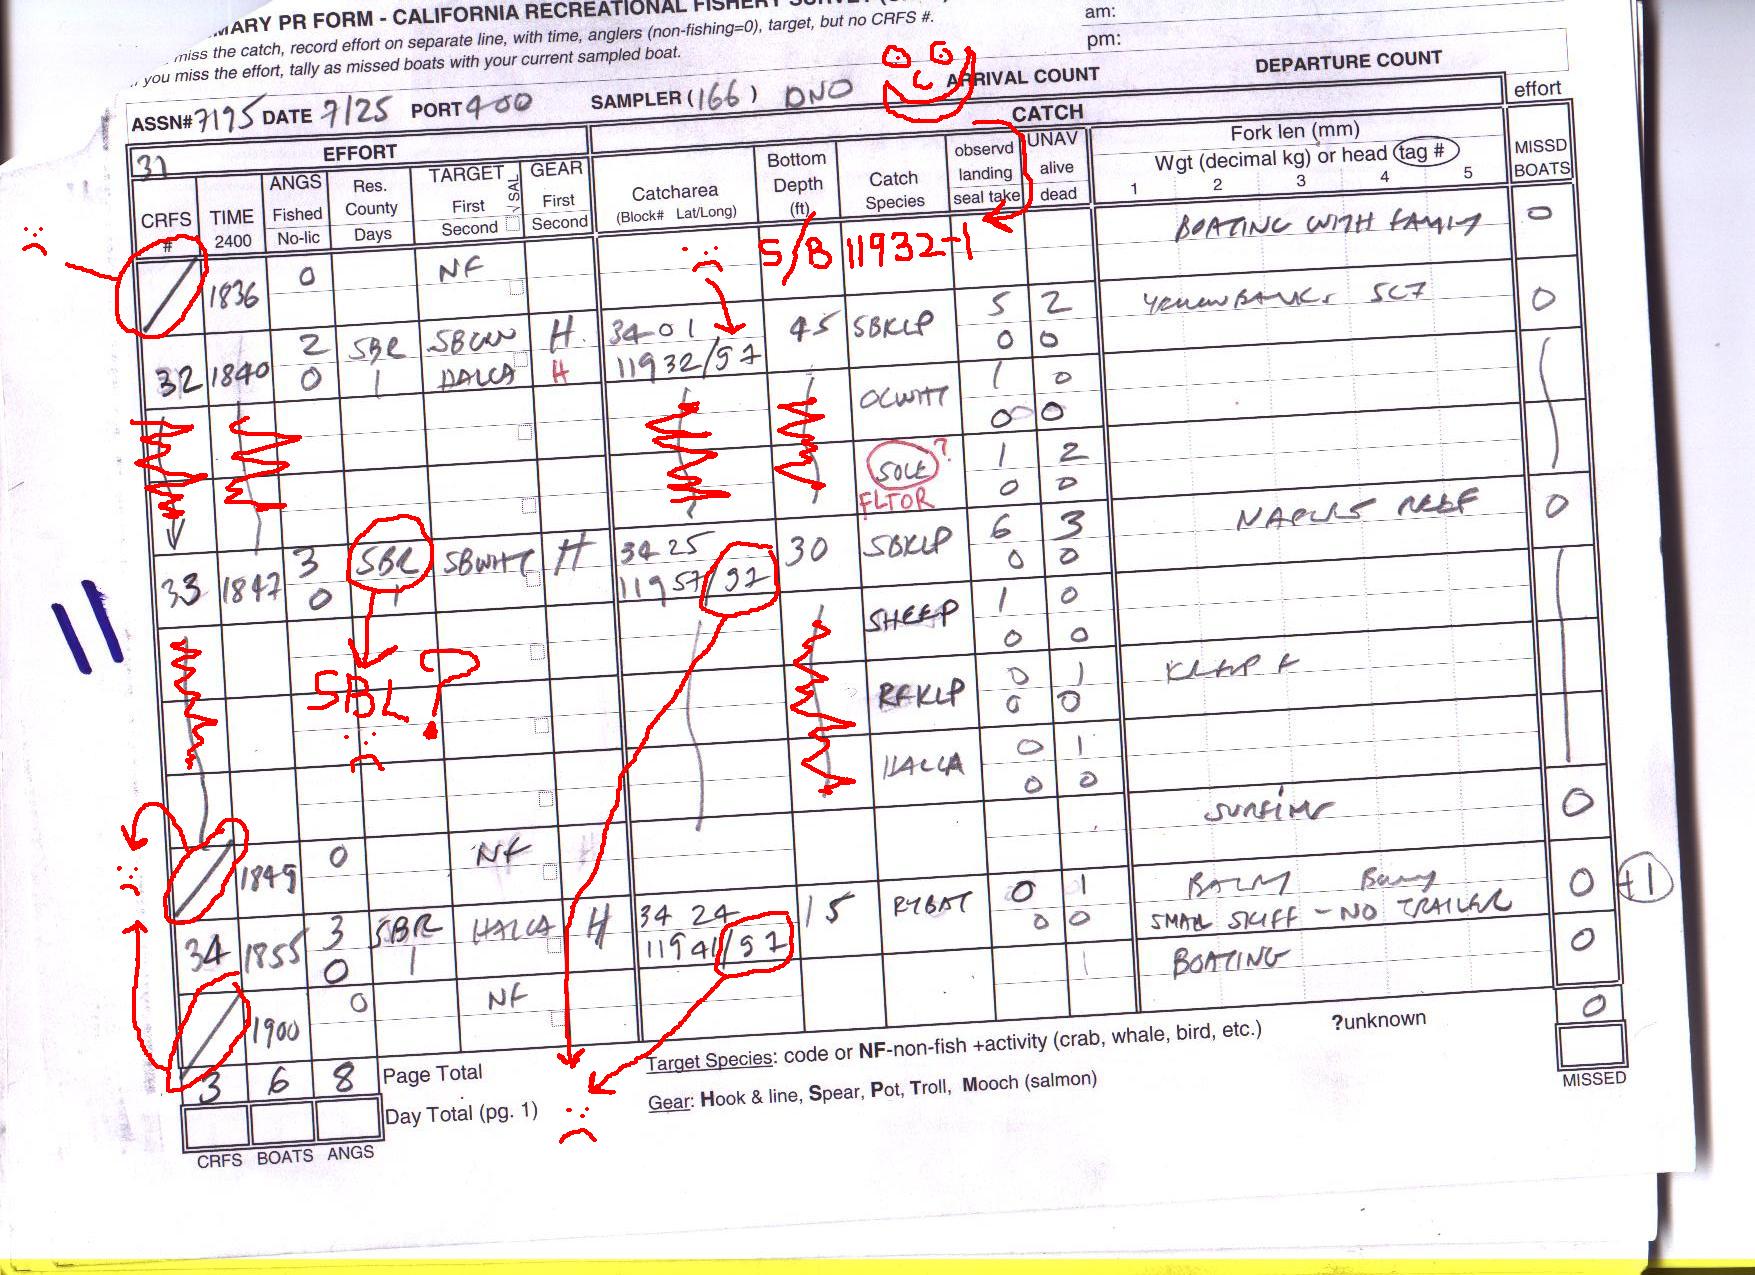 MARY PR FORM - CALIFORNIA RECREATIONAL FISHERY
miss the catch, record effort on separate line, with time, anglers (non-fishing=0), target, but no CRFS #.
you miss the effort, tally as missed boats with your current sampled boat.
am:
pm:
ASSN# 7195 DATE 7/25 PORT 400 SAMPLER (166) DNO ARRIVAL COUNT DEPARTURE COUNT
effort
31 EFFORT CATCH
CRFS # TIME 2400 ANGS Fished No-lic Res. County Days TARGET First Second √SAL GEAR First Second Catcharea (Block# Lat/Long) Bottom Depth (ft) Catch Species observd landing seal take UNAV alive dead Fork len (mm) Wgt (decimal kg) or head tag # 1 2 3 4 5 MISSD BOATS
S/B 11932-1
1836 0 NF BOATING WITH FAMILY 0
32 1840 2 SBR H 34 01 45 SBKLP 5 2 SC7 0
0 1 HALCA H 11932/97 0 0
OCWHT 1 0
0 0
SOLE ? 1 2
FLTOR 0 0
33 1847 3 SBR SBWHT H 34 25 30 SBKLP 6 3 NAPLES REEF 0
0 1 11957/97 0 0
SHEEP 1 0
0 0
SBL?
RFKLP 0 1
0 0
HALCA 0 1
0 0
1849 0 NF SURFING 0
34 1855 3 SBR HALCA H 34 24 15 RYBAT 0 1 0 +1
0 1 11941/97 0 0 SMALL SKIFF - NO TRAILER
1900 0 NF 1 BOATING 0
3 6 8 Page Total 0
Day Total (pg. 1)
CRFS BOATS ANGS
Target Species: code or NF-non-fish +activity (crab, whale, bird, etc.) ?unknown
Gear: Hook & line, Spear, Pot, Troll, Mooch (salmon)
MISSED